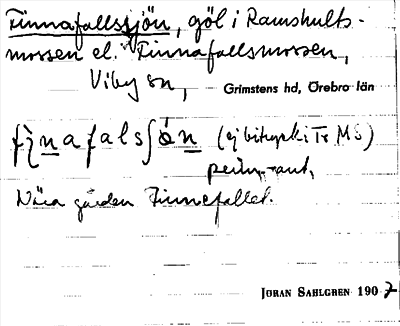 Finnafallssjön, göl i Ramshults-
mossen el. Finnafallsmossen,
Viby sn,
Grimstens hd, Örebro län
(ej bitryck i Tr MS)
Nära gården Finnefallet.
JÖRAN SAHLGREN 1907